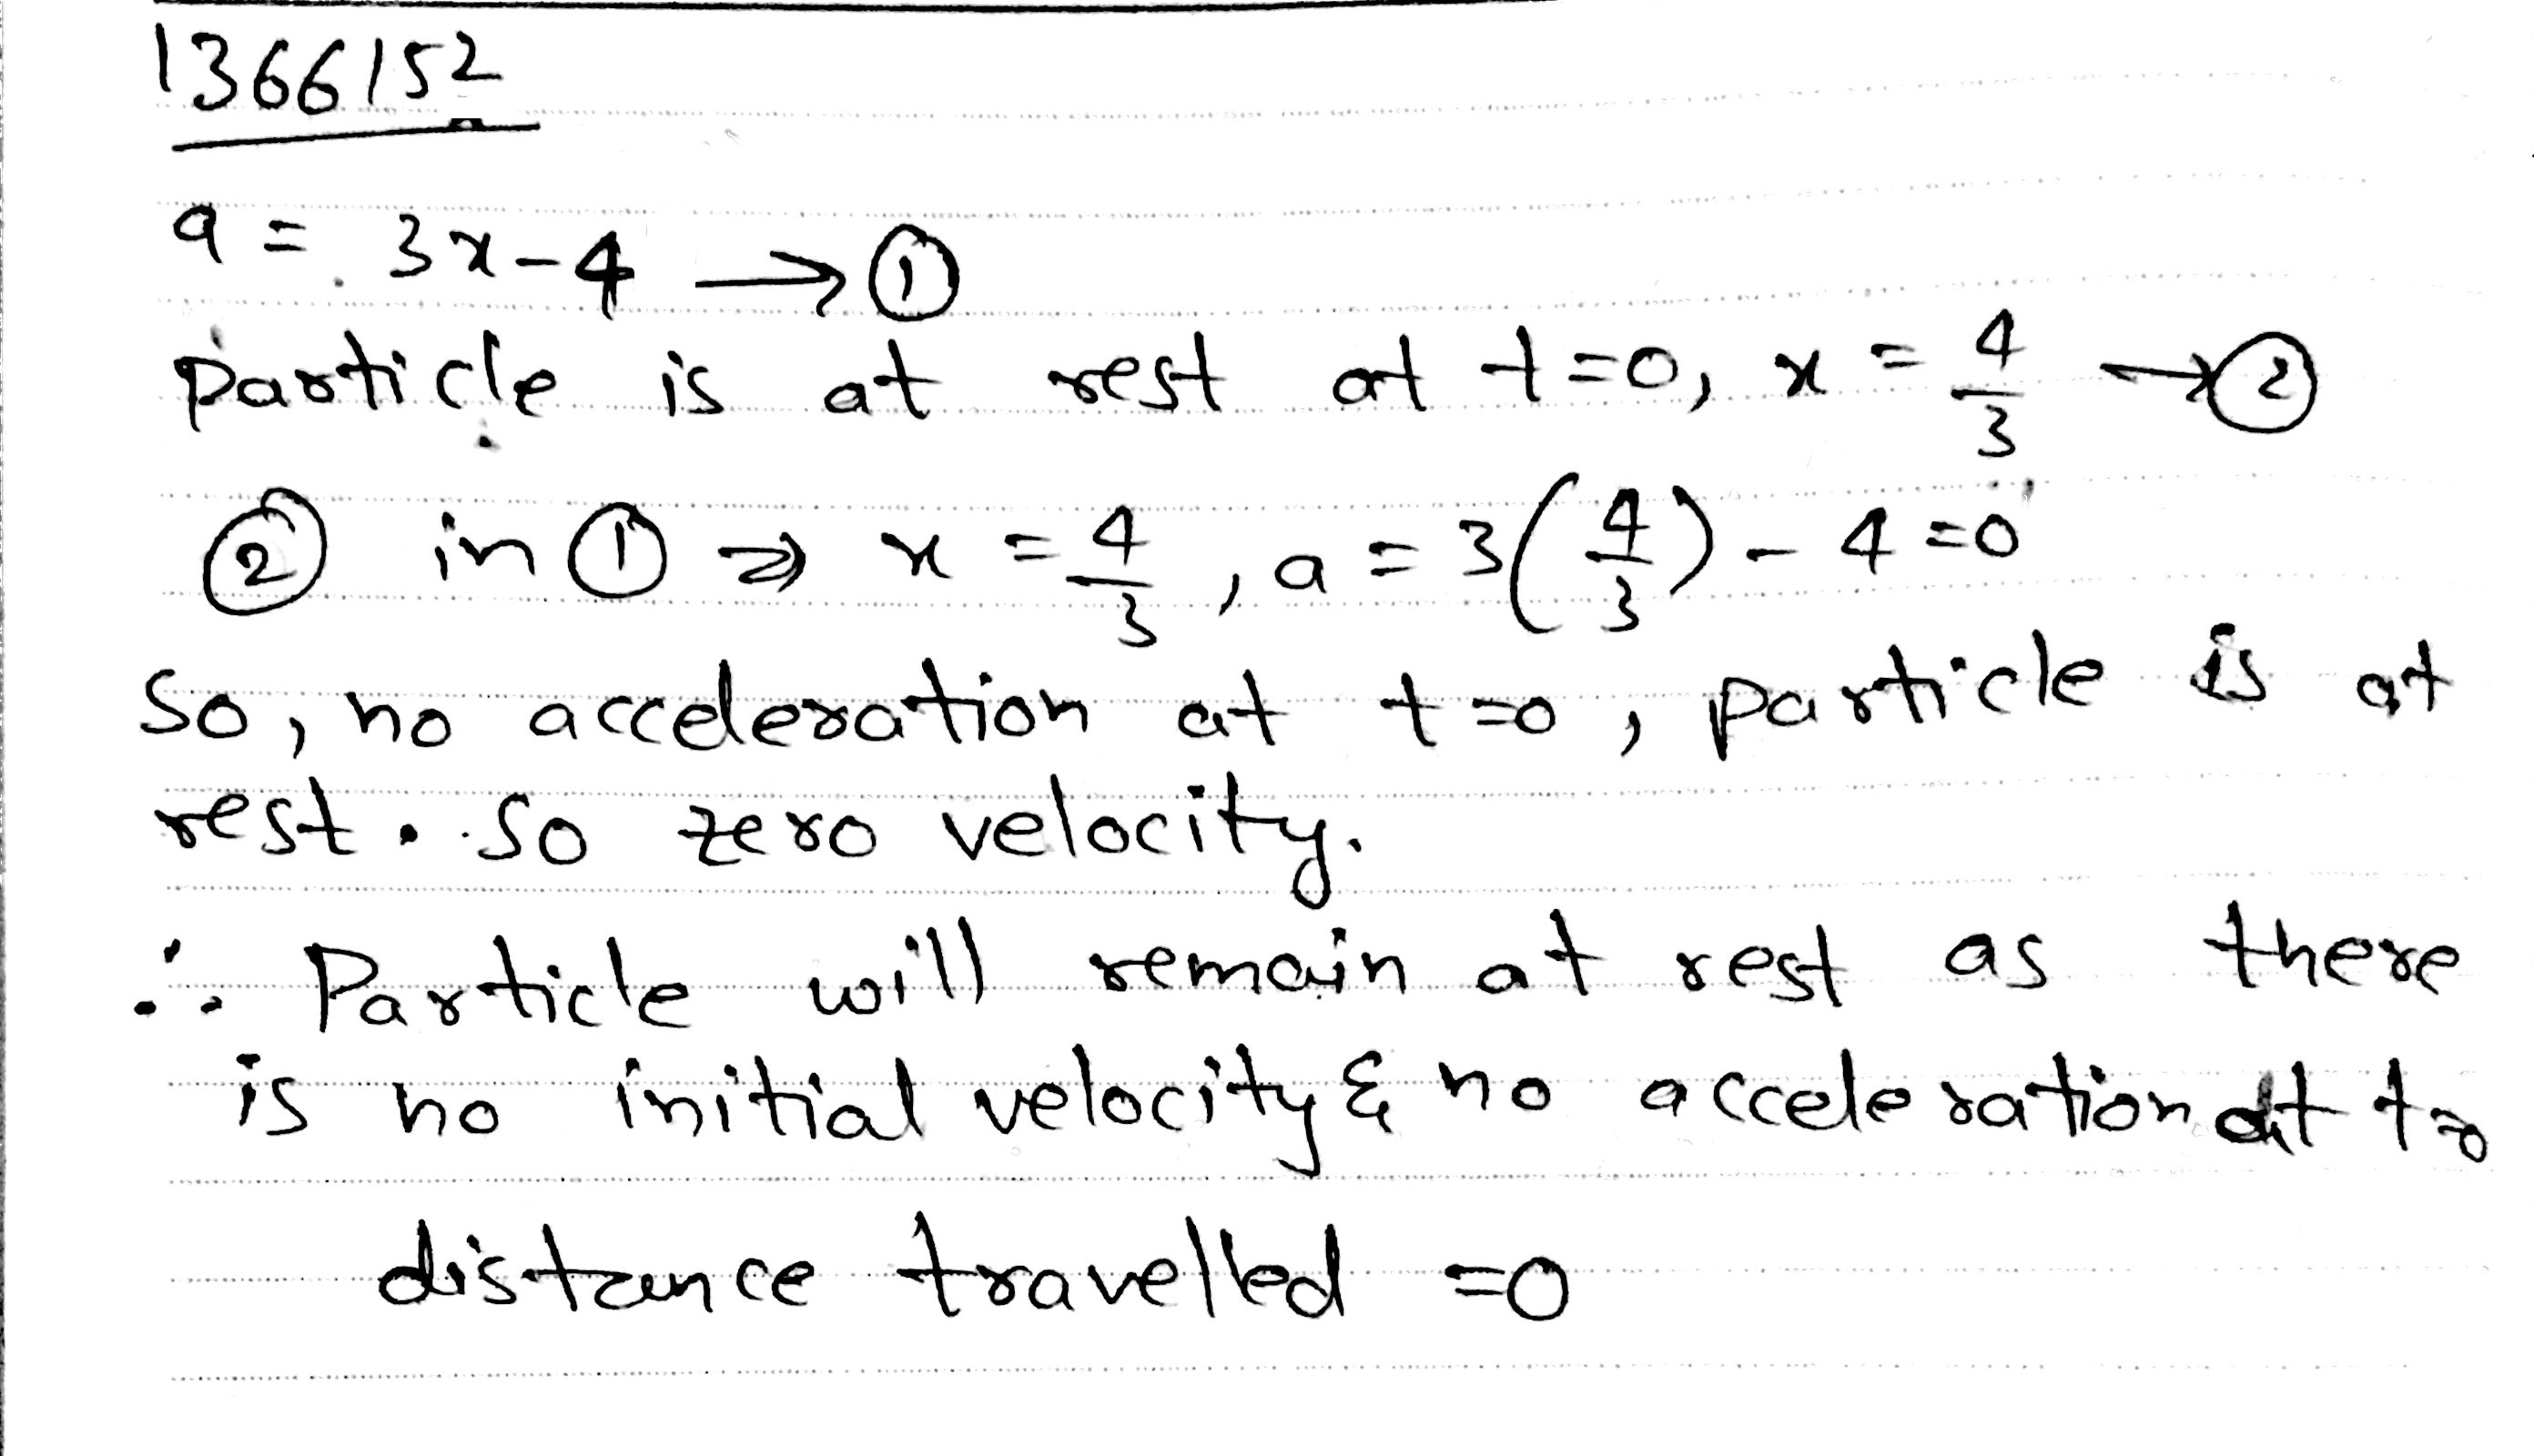 1366152
a = 3x-4 → ①
particle is at rest at t=0, x = 4/3 → ②
② in ① ⇒ x = 4/3, a = 3(4/3) - 4 =0
So, no acceleration at t=0, particle is at
rest. So zero velocity.
∴ Particle will remain at rest as there
is no initial velocity & no acceleration at t=0
distance travelled =0